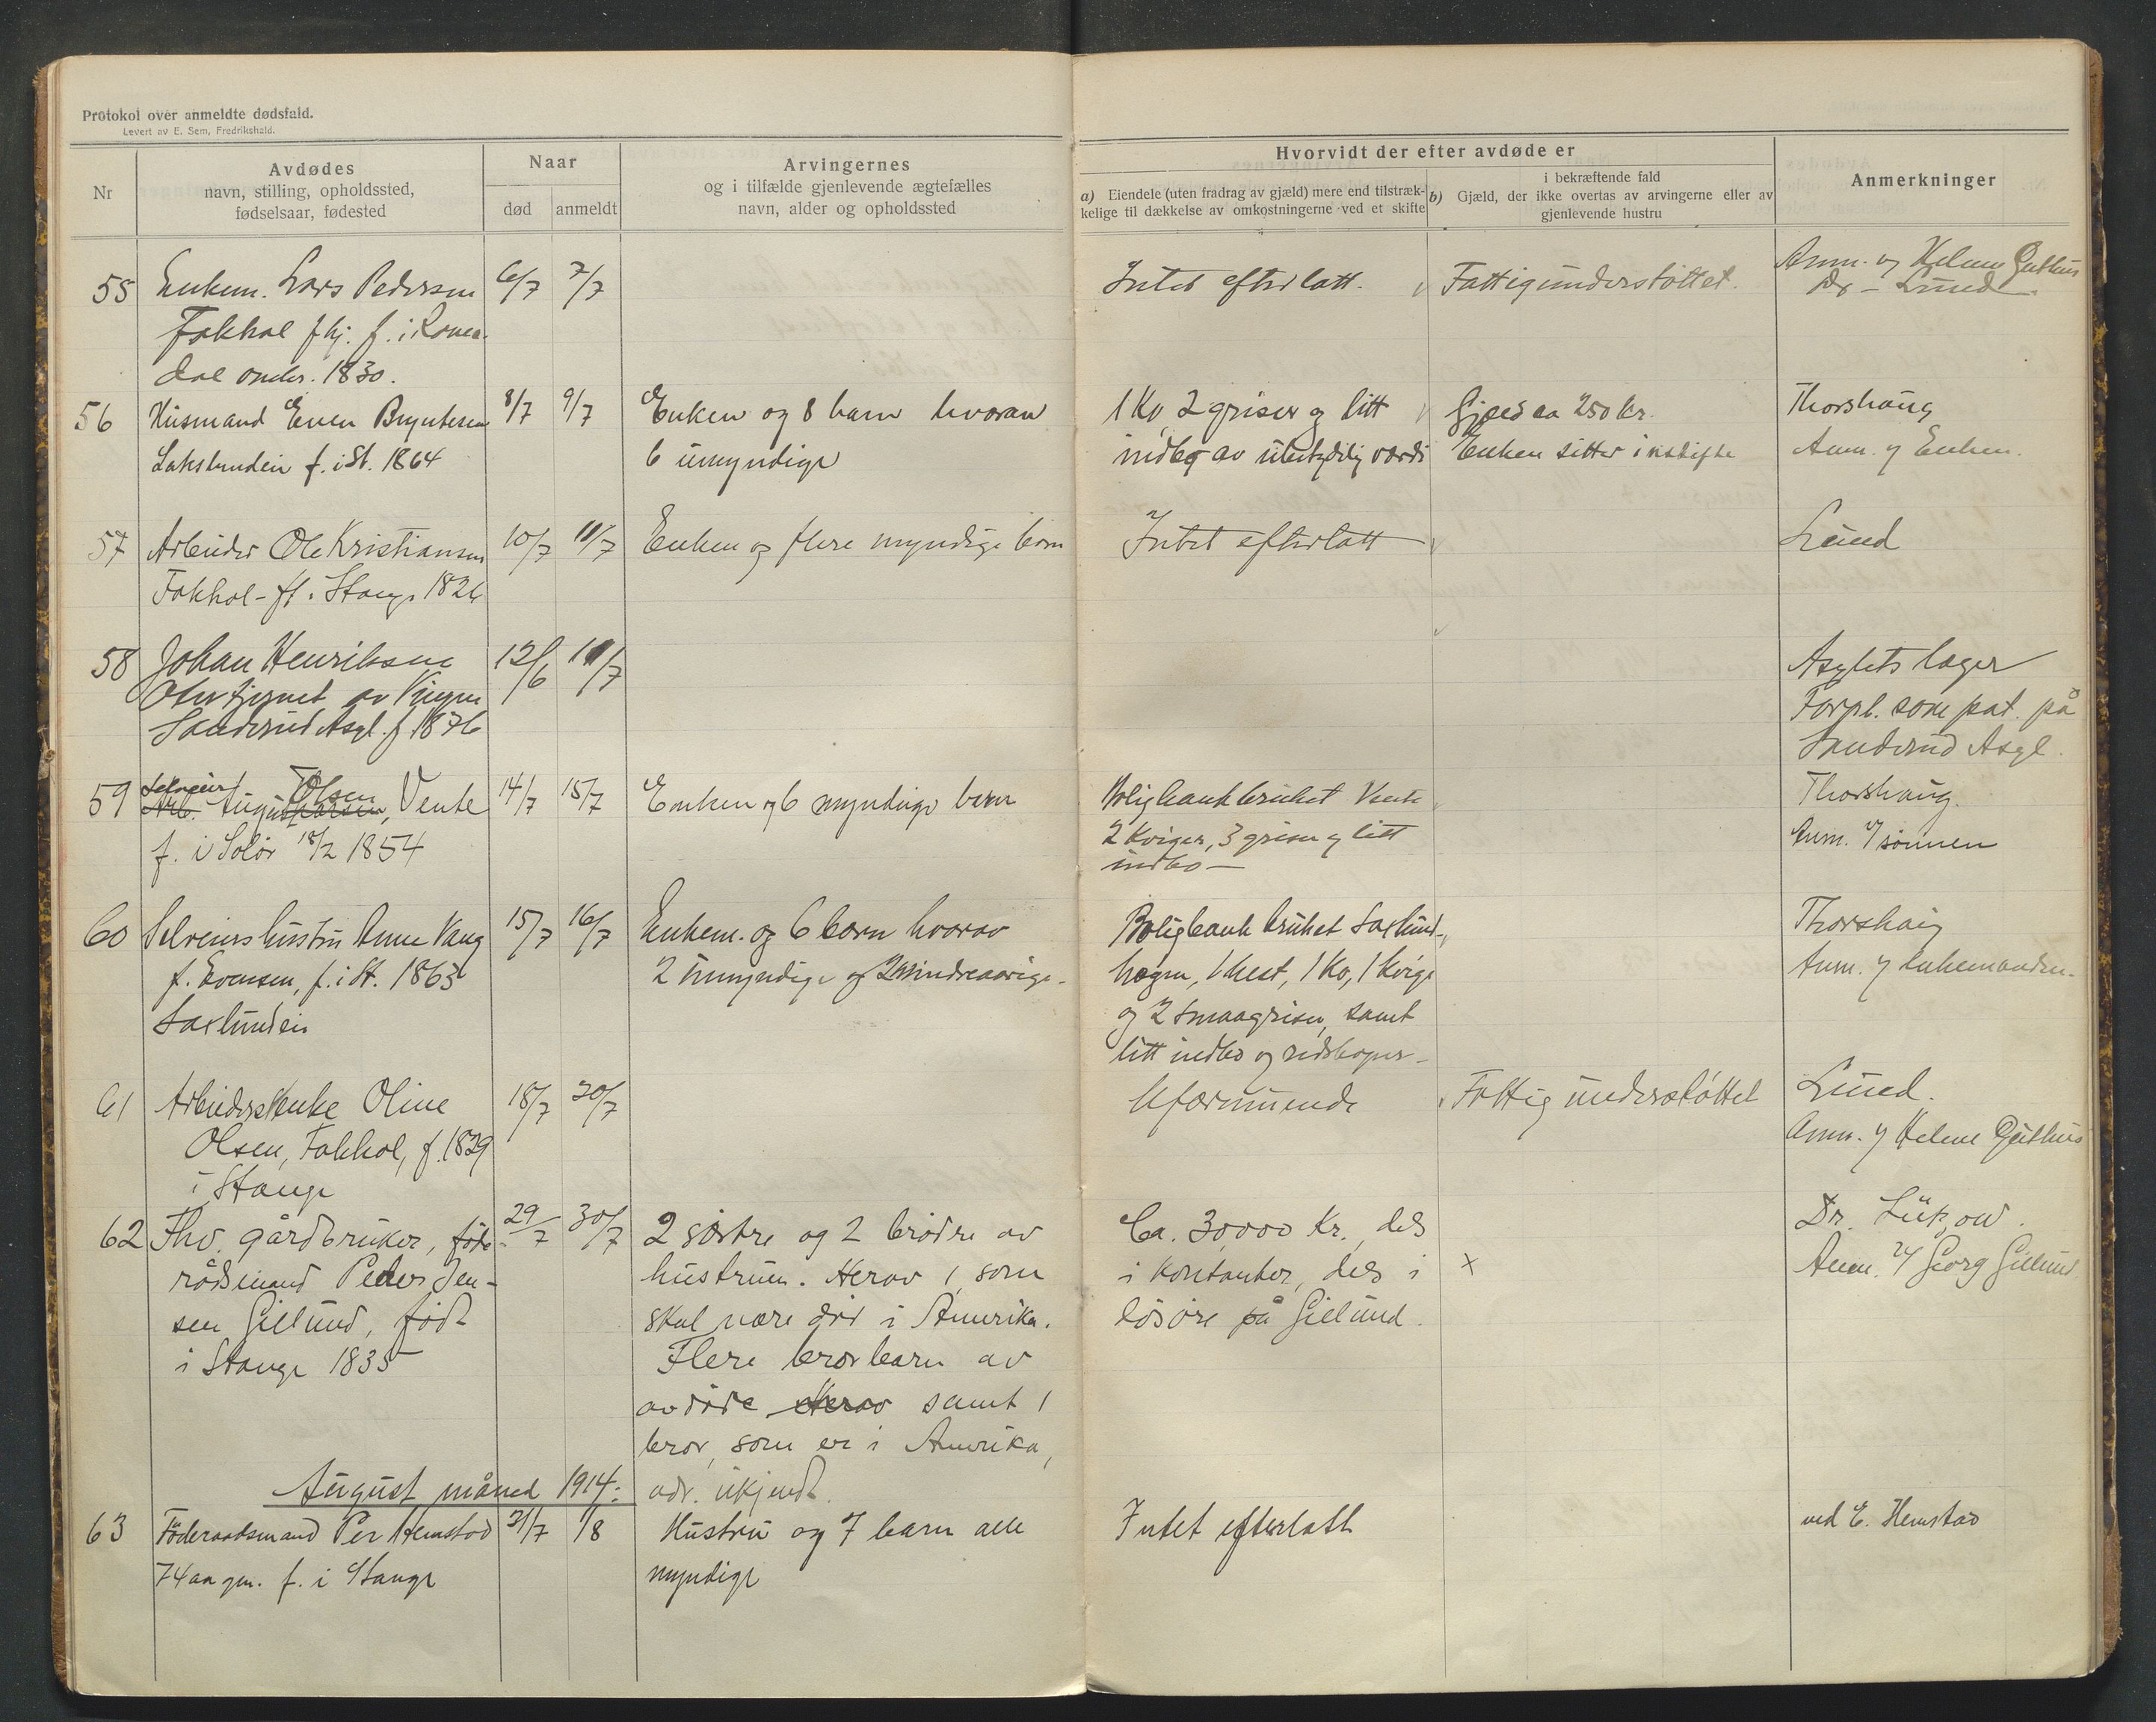 Protokol over anmeldte dødsfald.
Levert av E. Sem, Fredrikshald.
Nr
Avdødes
navn, stilling, opholdssted,
fødselsaar, fødested
Naar
død
anmeldt
Arvingernes
og i tilfælde gjenlevende ægtefælles
navn, alder og opholdssted
Hvorvidt der efter avdøde er
a) Eiendele (uten fradrag av gjæld) mere end tilstræk-
kelige til dækkelse av omkostningerne ved et skifte
i bekræftende fald
b) Gjæld, der ikke overtas av arvingerne eller av
gjenlevende hustru
Anmerkninger
55 Enkem. Lars Pedersen 6/7 7/7
Fokhol f. i Romе-
dal 1830.
Intet efterlatt. Fattigunderstöttet.
Anm. Helene Guthus
Dr Lund
56 Husmand Even Bryntesen 8/7 9/7
f. i St. 1864
Enken og 8 barn hvorav
6 umyndige
1 Ko, 2 griser og litt
indbo av ubetydelig værdi
Gjæld ca 250 kr.
Enken sitter i uskifte
Thorshaug
Anm. af Enken.
57 Arbeider Ole Kristiansen 10/7 11/7
Fokhol - f. i Stange 1826
Enken og flere myndige barn
Intet efterlatt
Lund
58 Johan Henriksen 12/6 11/7
av Vingen
Sanderud Asyl. f 1876
Asylets læger
Forpl. som pat. på
Sanderud Asyl.
59 Selveier Arb. August Olsen, Vente 14/7 15/7
f. i Solör 18/2 1854
Enken og 6 myndige barn
Boligbankbruket Vente
2 Kviger, 3 griser og litt
indbo -
Thorshaug.
Anm. af sönnen
60 Selveiers hustru Anne Vang 15/7 16/7
f. Evensen, f. i St. 1863
Saxlunden
Enkem. og 6 barn hvorav
2 umyndige og 2 mindreaarige.
Boligbank bruket Saxlund-
hagen, 1 hest, 1 Ko, 1 kvige
og 2 smaagriser, samt
litt indbo og redskaper -
Thorshaug
Anm. af enkemanden.
61 Arbeidersenke Oline 18/7 20/7
Olsen, Fokhol, f. 1829
i Stange
Uformuende
Fattig understöttet
Lund.
Anm. af Helene Guthus
62 Fhv. gårdbruker, föde- 29/7 30/7
rådsmand Peder Jen-
sen Gillund, född
i Stange 1835
2 söstre og 2 brödre av
hustruen. Herav 1, som
skal være död i Amerika.
Flere brorbarn av
avdöde Herav samt 1
bror, som er i Amerika,
adr. ukjendt.
Ca. 30,000 Kr., dels
i kontanter, dels i
lösöre på Gillund.
x
Dr. Lützow.
Anm. af Georg Gillund
August måned 1914:
63 Föderaadsmand Per Hemstad 31/7 1/8
74 aar gm. f. i Stange
Hustru og 7 barn alle
myndige
Intet efterlatt
ved E. Hemstad